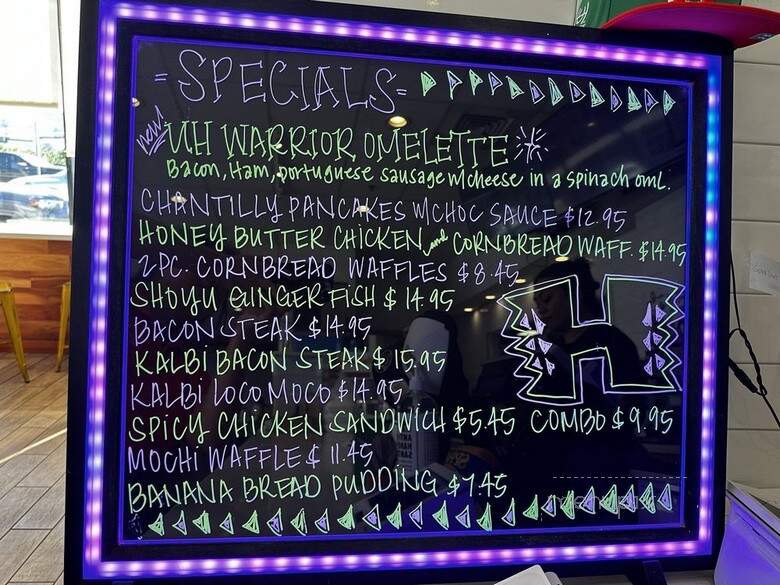 = SPECIALS =
new! UH WARRIOR OMELETTE
Bacon, Ham, portuguese sausage w/cheese in a spinach oml.
CHANTILLY PANCAKES W/CHOC SAUCE $12.95
HONEY BUTTER CHICKEN and CORNBREAD WAFF. $14.95
2 PC. CORNBREAD WAFFLES $8.45
SHOYU GINGER FISH $14.95
BACON STEAK $14.95
KALBI BACON STEAK $15.95
KALBI LOCO MOCO $14.95
SPICY CHICKEN SANDWICH $5.45 COMBO $9.95
MOCHI WAFFLE $11.45
BANANA BREAD PUDDING $7.45
H